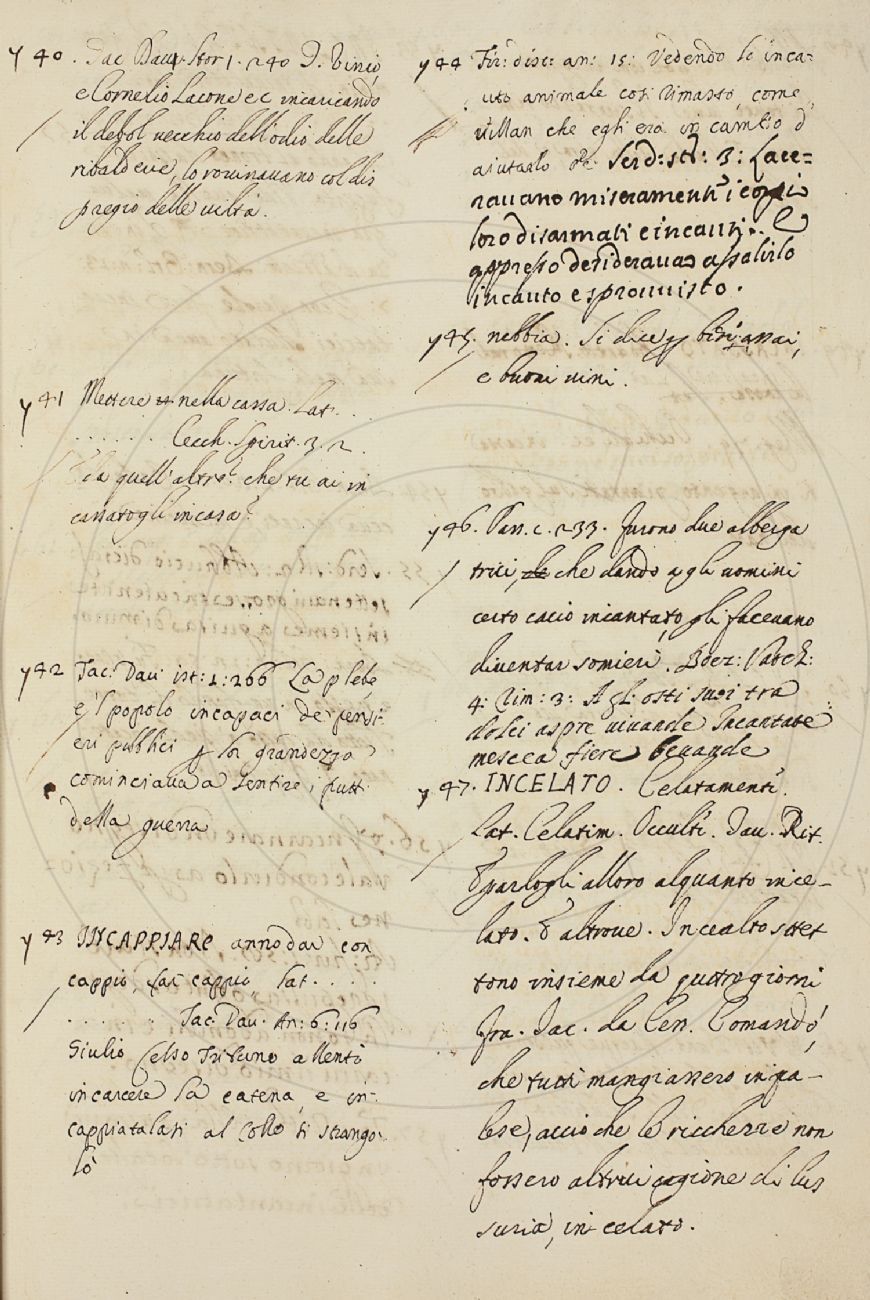 y 40. Tac. Dav. Stor. 1. 240 T. Vinio,
e Cornelio Lacone ec incaricando
il debol vecchio dell'odio delle
ribalderie, lo rovinavano col dis
pregio delle viltà.
y 41 Mettere nella cassa. Lat. . .
. . . . . . Cecch. Spirit. 3. 2.
quell'altre che tu ai in
cassatogli in casa?
y 42 Tac. Dav. ist: 1: 266 La plebe
e 'l popolo incapaci de' pensi-
eri pubblici la grandezza
cominciava a sentire i frutt
della guerra
y 43 INCAPPIARE annodar con
cappio, far cappio, Lat. . . . .
. . . . . Tac. Dav. An: 6: 116
Giulio Celso Tribuno allentò
in carcere la catena, e in-
cappiatalasi al collo si strango-
lò
y 44 Fir: disc: an: 15: Vedendo lo inca-
uto animale così rimasto, come
villan che egli era in cambio d
aiutarlo ec. Serd: sto: 3: Lace-
ravano miseramente i corpi
loro disarmati e incauti. E
appresso desiderava assalirlo
incauto e sprovvisto.
y 45. nebbia. Si dice assai,
e buoni vini.
y 46. Pass. c. 233. furono due alberga
trici, che dando agli uomini
certo cacio incantato, gli facevano
diventar somieri. Boez: Varch:
4: Rim: 3: Agl'osti suoi tra
dolci aspre vivande Incantate
mescea fiere bevande
y 47. INCELATO. Celatamente.
Lat. Celatim. Occultè. Dav. Rit.
E parlogli alloro alquanto ince-
lato. E altrove. In cealto stet
tono insieme da quattro giorni
fra. Iac. da Cen. Comandò,
che tutti mangiassero in pa-
lese, acciò che le ricchezze non
fossero altrui cagione di lus
suria, in celato.